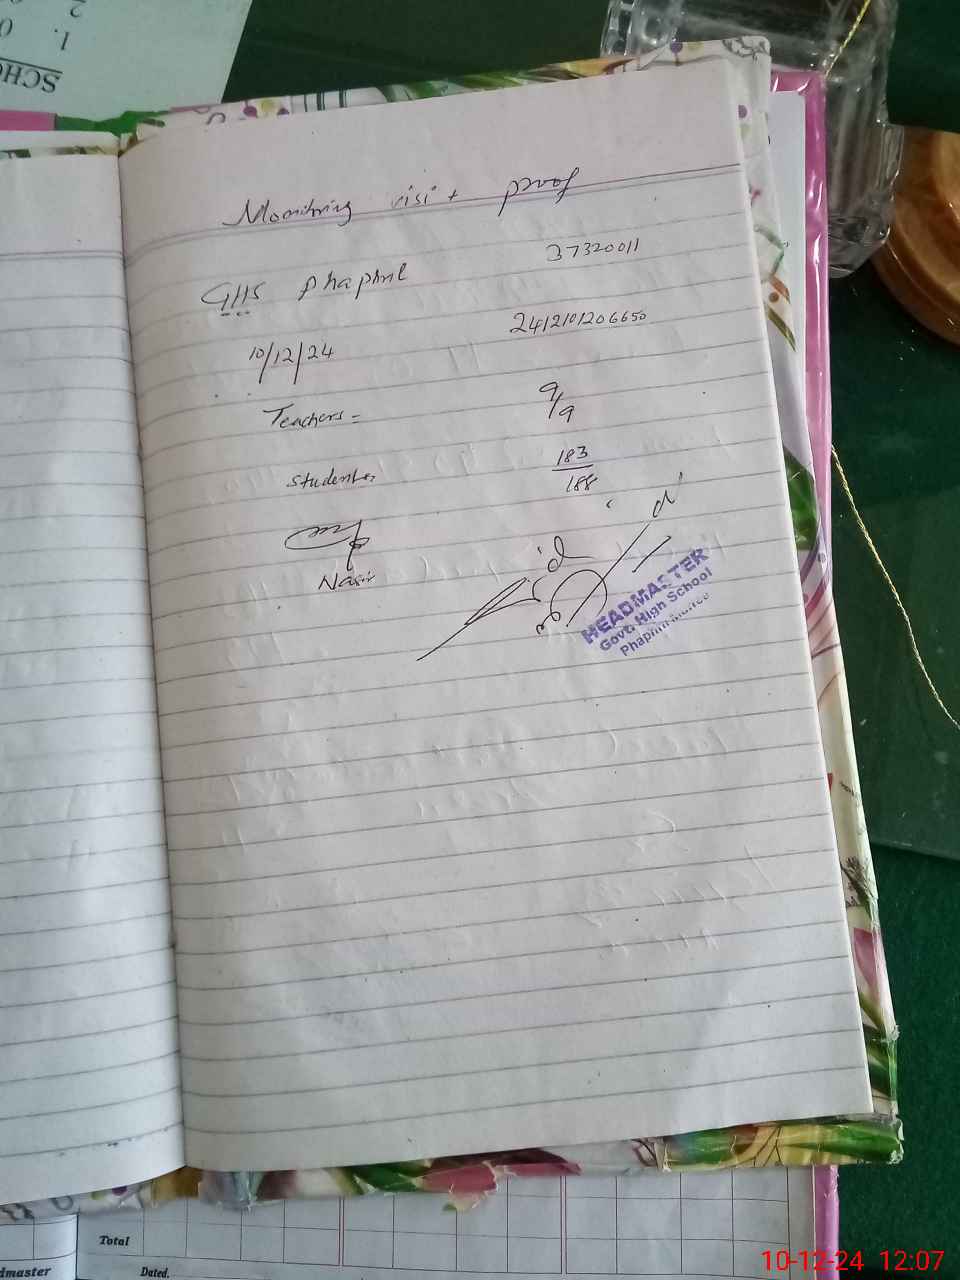 SCHO
1. 0
2
Monitring visit proof
GHS Phaphril 37320011
10/12/24 2412101206650
Teachers = 9/9
Students 183/188
Nasir
HEADMASTER
Govt: High School
Total
dmaster Dated.
10-12-24 12:07